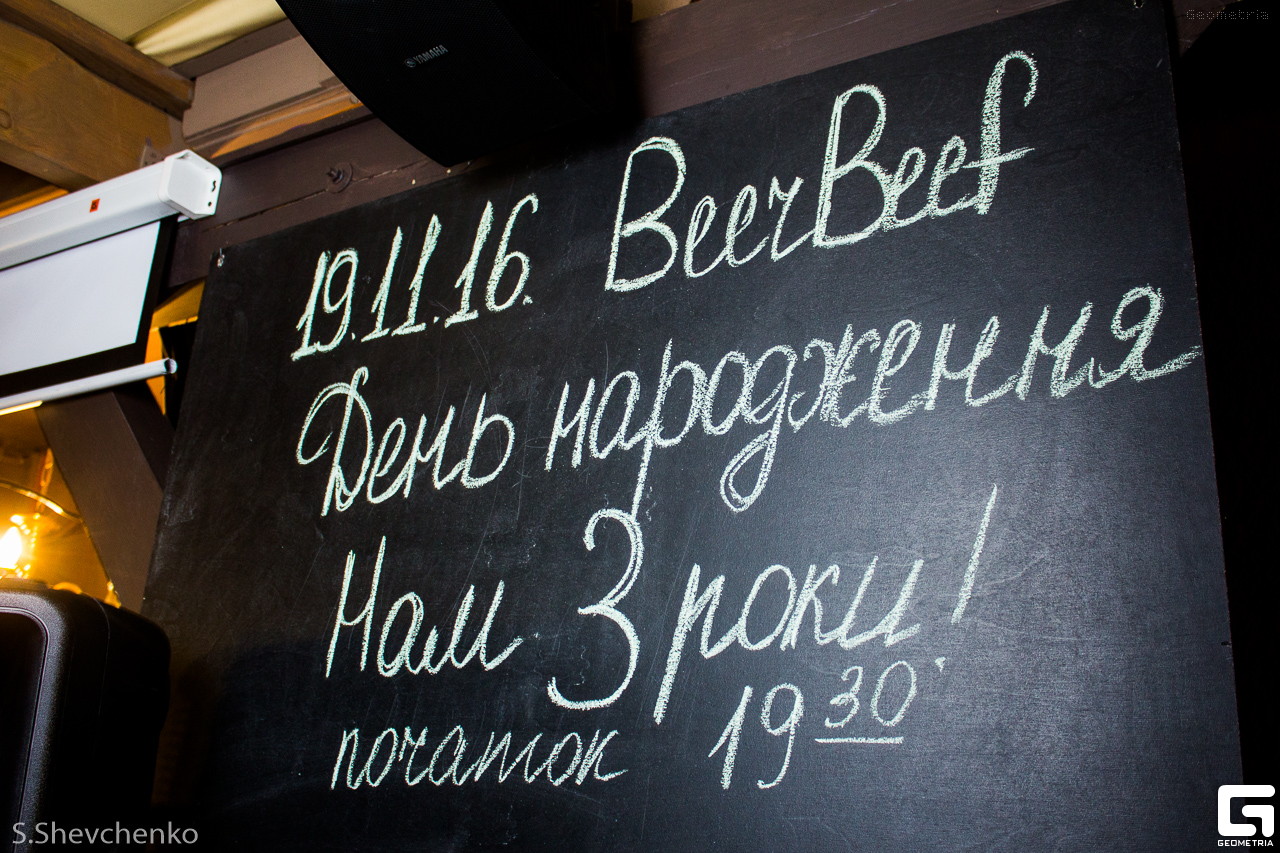 Geometria
YAMAHA
19.11.16. BeerBeef
День народження
Нам 3 роки!
початок 19 30
S.Shevchenko
GEOMETRIA